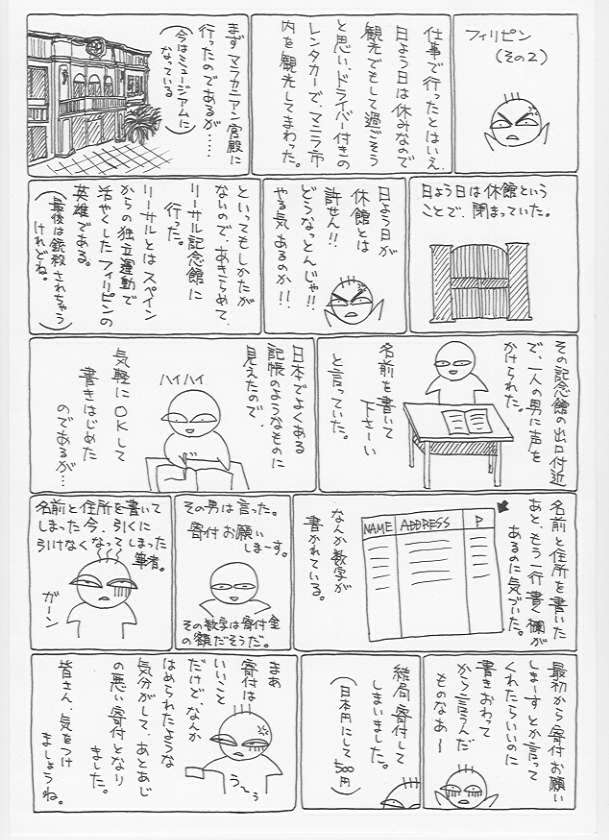 フィリピン
(その2)
仕事で行ったとはいえ、
日よう日は休みなので
観光でもして過ごそう
と思い、ドライバー付きの
レンタカーで、マニラ市
内を観光してまわった。
まずマラカニアン宮殿に
行ったのであるが……
(今はミュージアムに
なっている)
日よう日は休館という
ことで、閉まっていた。
日よう日が
休館とは
許せん!!
どうなっとんじゃ!!
やる気あるのか!!
といってもしかたが
ないので、あきらめて、
リーサル記念館に
行った。
リーサルとはスペイン
からの独立運動で
活やくしたフィリピンの
英雄である。
(最後は銃殺されちゃう
けれどね。)
その記念館の出口付近
で、一人の男に声を
かけられた。
名前を書いて
下さーい
と言っていた。
日本でよくある
記帳のようなものに
見えたので、
ハイハイ
気軽にOKして
書きはじめた
のであるが…
名前と住所を書いた
あと、もう一行書く欄が
あるのに気づいた。
NAME ADDRESS P
なんか数字が
書かれている。
その男は言った。
寄付お願い
しまーす。
その数字は寄付金
の額だそうだ。
名前と住所を書いて
しまった今、引くに
引けなくなってしまった
筆者。
ガーン
最初から寄付お願い
しまーすとか言って
くれたらいいのに
書きおわって
から言うんだ
ものなあ〜
結局、寄付して
しまいました。
(日本円にして500円)
まあ
寄付は
いいこと
だけど、なんか
はめられたような
気分がして、あとあじ
の悪い寄付となり
ました。
う〜う
皆さん、気をつけ
ましょうね。